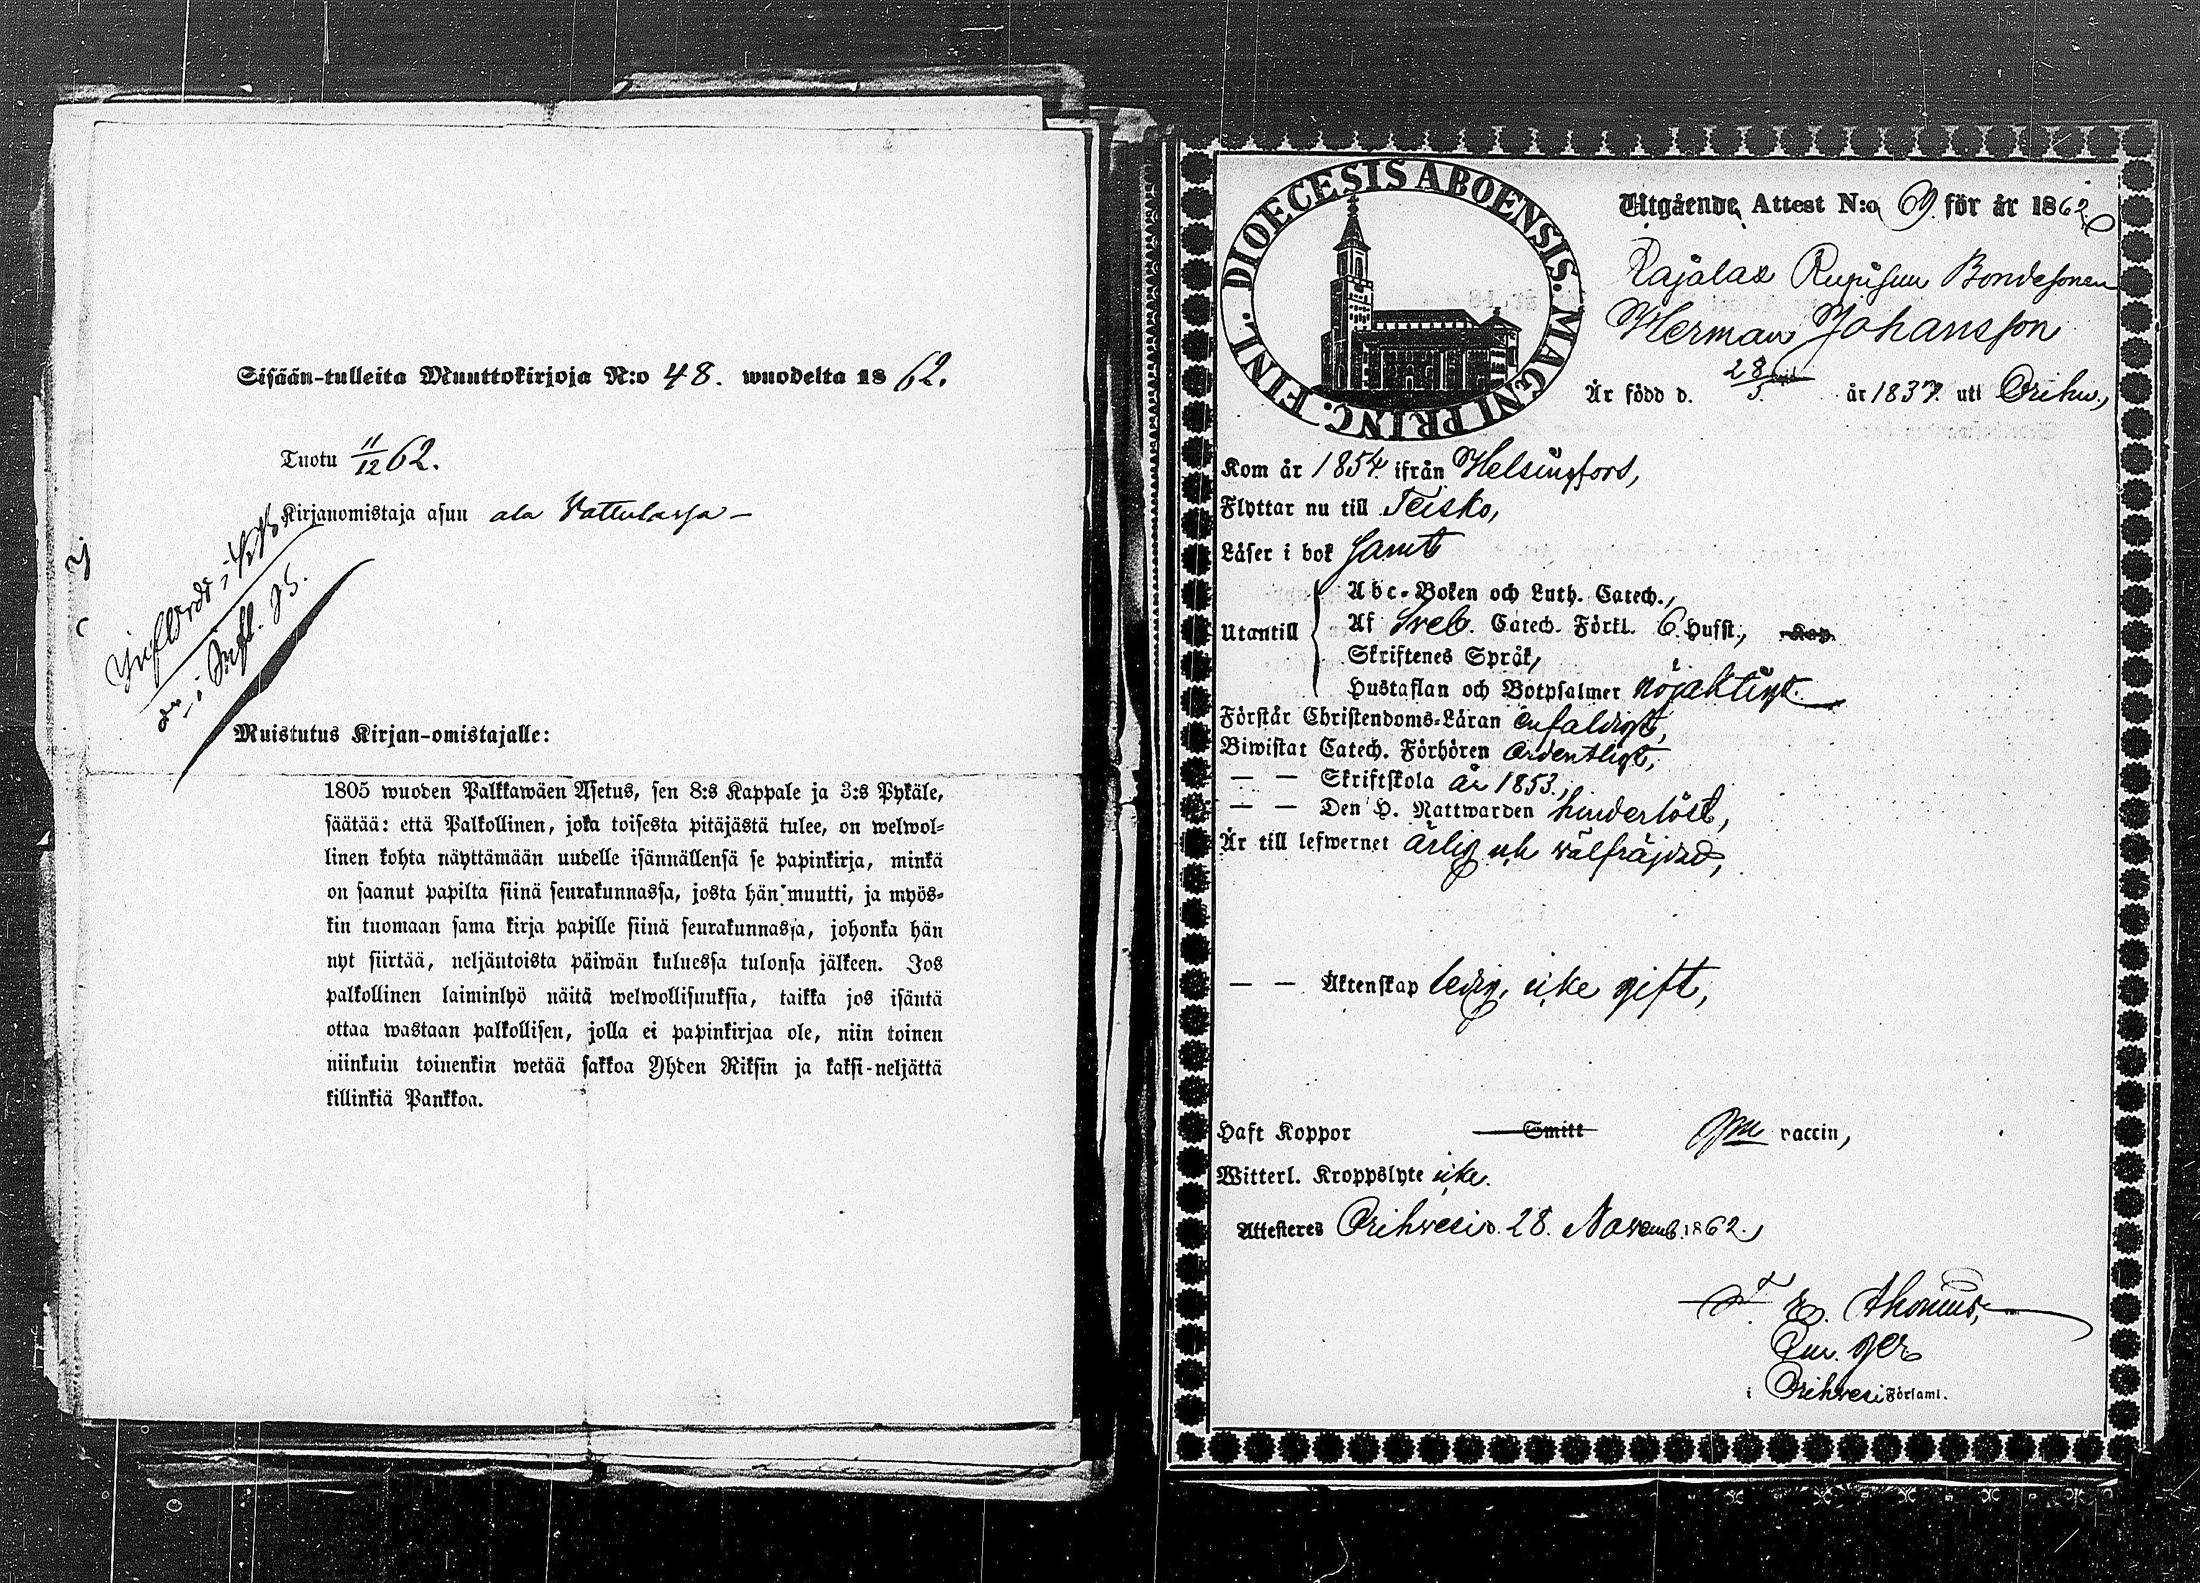 Sisään-tulleita Muuttokirjoja N:o 48. wuodelta 1862.
Tuotu 11/12 62.
Kirjanomistaja asuu ala Vattulassa –
Införd i
Muistutus Kirjan-omistajalle:
1805 wuoden Palkkawäen Asetus, sen 8:s Kappale ja 3:s Pykäle,
säätää: että Palkollinen, joka toisesta pitäjästä tulee, on welwol-
linen kohta näyttämään uudelle isännällensä se papinkirja, minkä
on saanut papilta siinä seurakunnassa, josta hän muutti, ja myös-
kin tuomaan sama kirja papille siinä seurakunnassa, johonka hän
nyt siirtää, neljäntoista päiwän kuluessa tulonsa jälkeen. Jos
palkollinen laiminlyö näitä welwollisuuksia, taikka jos isäntä
ottaa wastaan palkollisen, jolla ei papinkirjaa ole, niin toinen
niinkuin toinenkin wetää sakkoa Yhden Riksin ja kaksi-neljättä
killinkiä Pankkoa.
DIOECESIS ABOENSIS. MAGNI PRINC. FINL.
Utgående Attest N:o 69. för år 1862
Rajalax Bondesonen
Herman Johansson
Är född d. 28/5 år 1837. uti Orihw.,
Kom år 1854. ifrån Helsingfors,
Flyttar nu till Teisko,
Läser i bok samt
Utantill
Abc-Boken och Luth. Catech.,
Af Sveb. Catech. Förkl. 6. Hufst., Kap.
Skriftenes Språk,
Hustaflan och Botpsalmer nöjaktigt.
Förstår Christendoms-Läran enfaldigt,
Biwistat Catech. Förhören ordentligt,
— — Skriftskola år 1853.,
— — Den H. Nattwarden hinderlöst,
Är till lefwernet ärlig och välfräjdad,
— — Äktenskap ledig, icke gift,
Haft Koppor Smitt gm vaccin,
Witterl. Kroppslyte icke.
Attesteras Orihvesi d. 28. Novemb. 1862.,
Thomus,
i Orihvesi Församl.